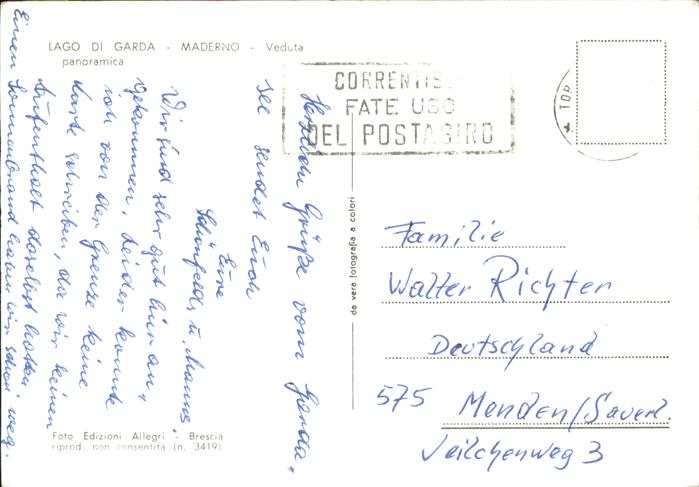 LAGO DI GARDA - MADERNO - Veduta
panoramica
CORRENTIS
FATE USO
DEL POSTAGIRO
TOP
Herzliche Grüße vom Garda-
see sendet Euch
Eure
Schönfelds u. Manns.
Wir sind sehr gut hier an-
gekommen, leider konnte
ich von der Grenze keine
Karte schreiben, da wir keinen
Aufenthalt daselbst hatten.
Einen Sonnenbrand haben wir schon weg.
da vera fotografia a colori
Familie
Walter Richter
Deutschland
575 Menden/Sauerl.
Veilchenweg 3
Foto Edizioni Allegri - Brescia
riprod. non consentita (n. 3419)